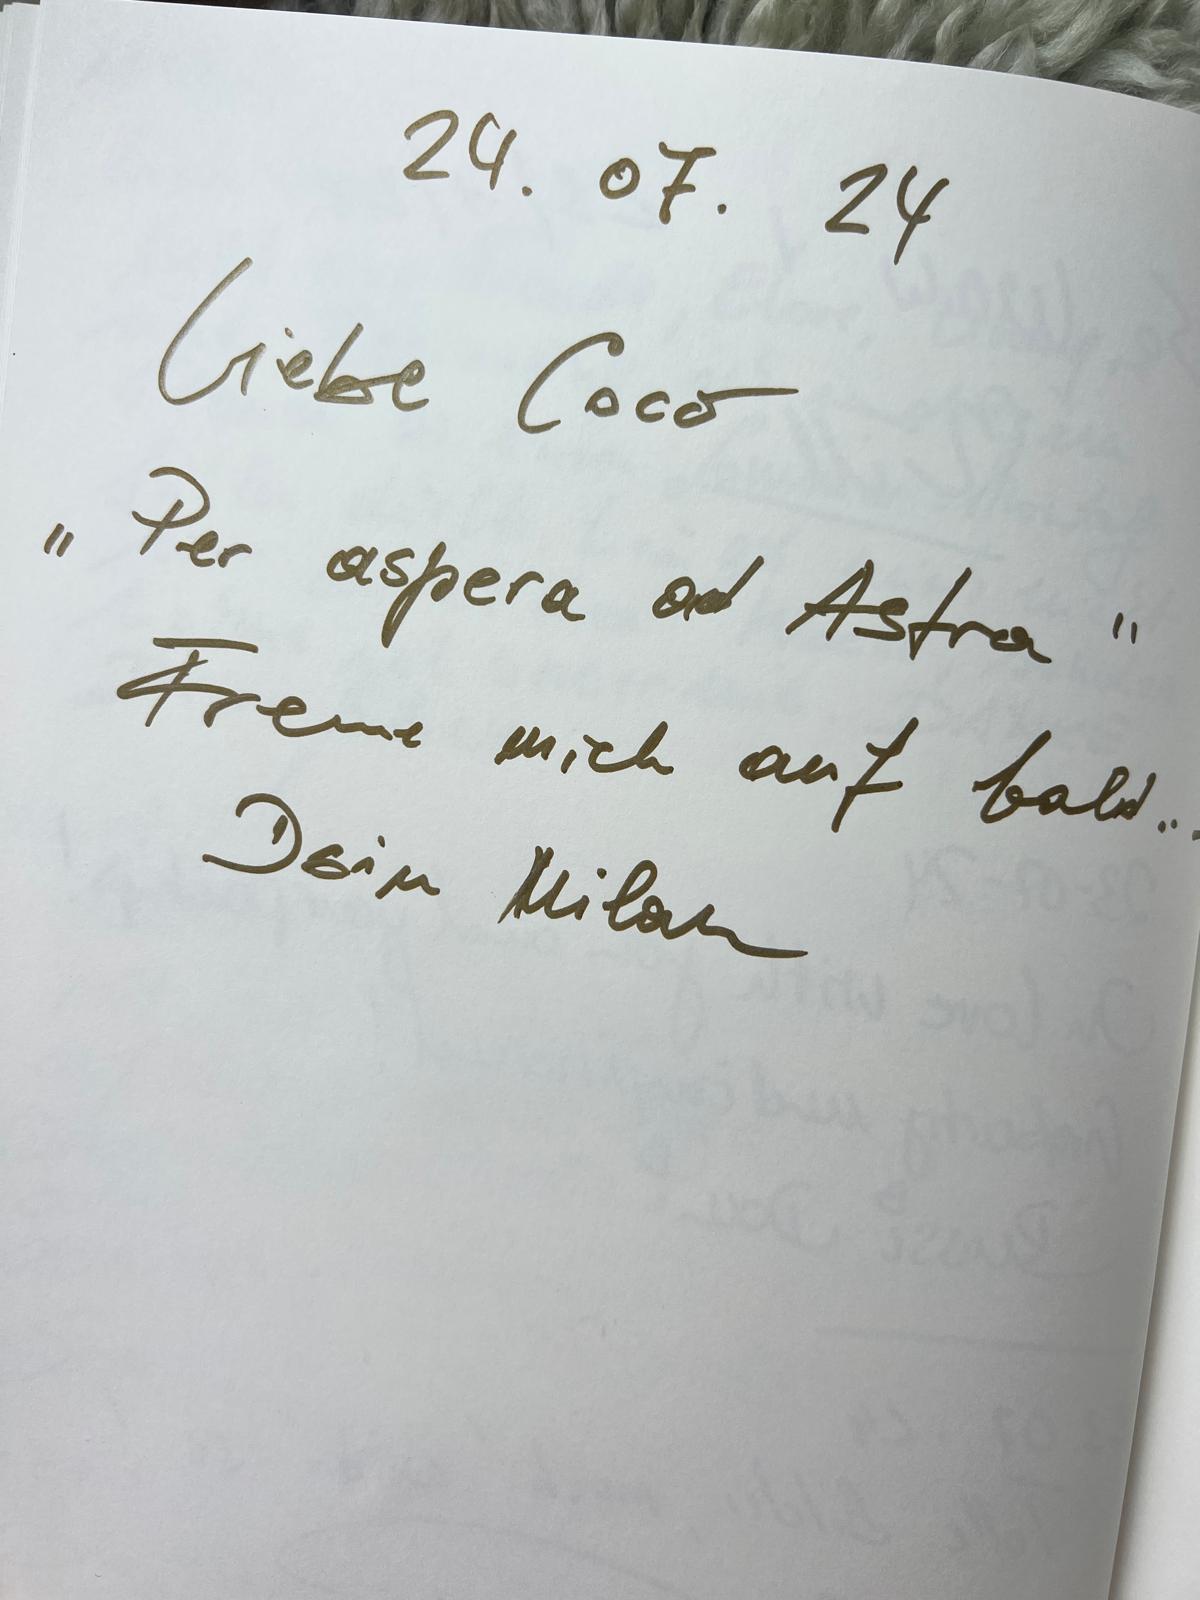 24. 07. 24
Liebe Coco
" Per aspera ad Astra "
Freue mich auf bald...
Dein Milan